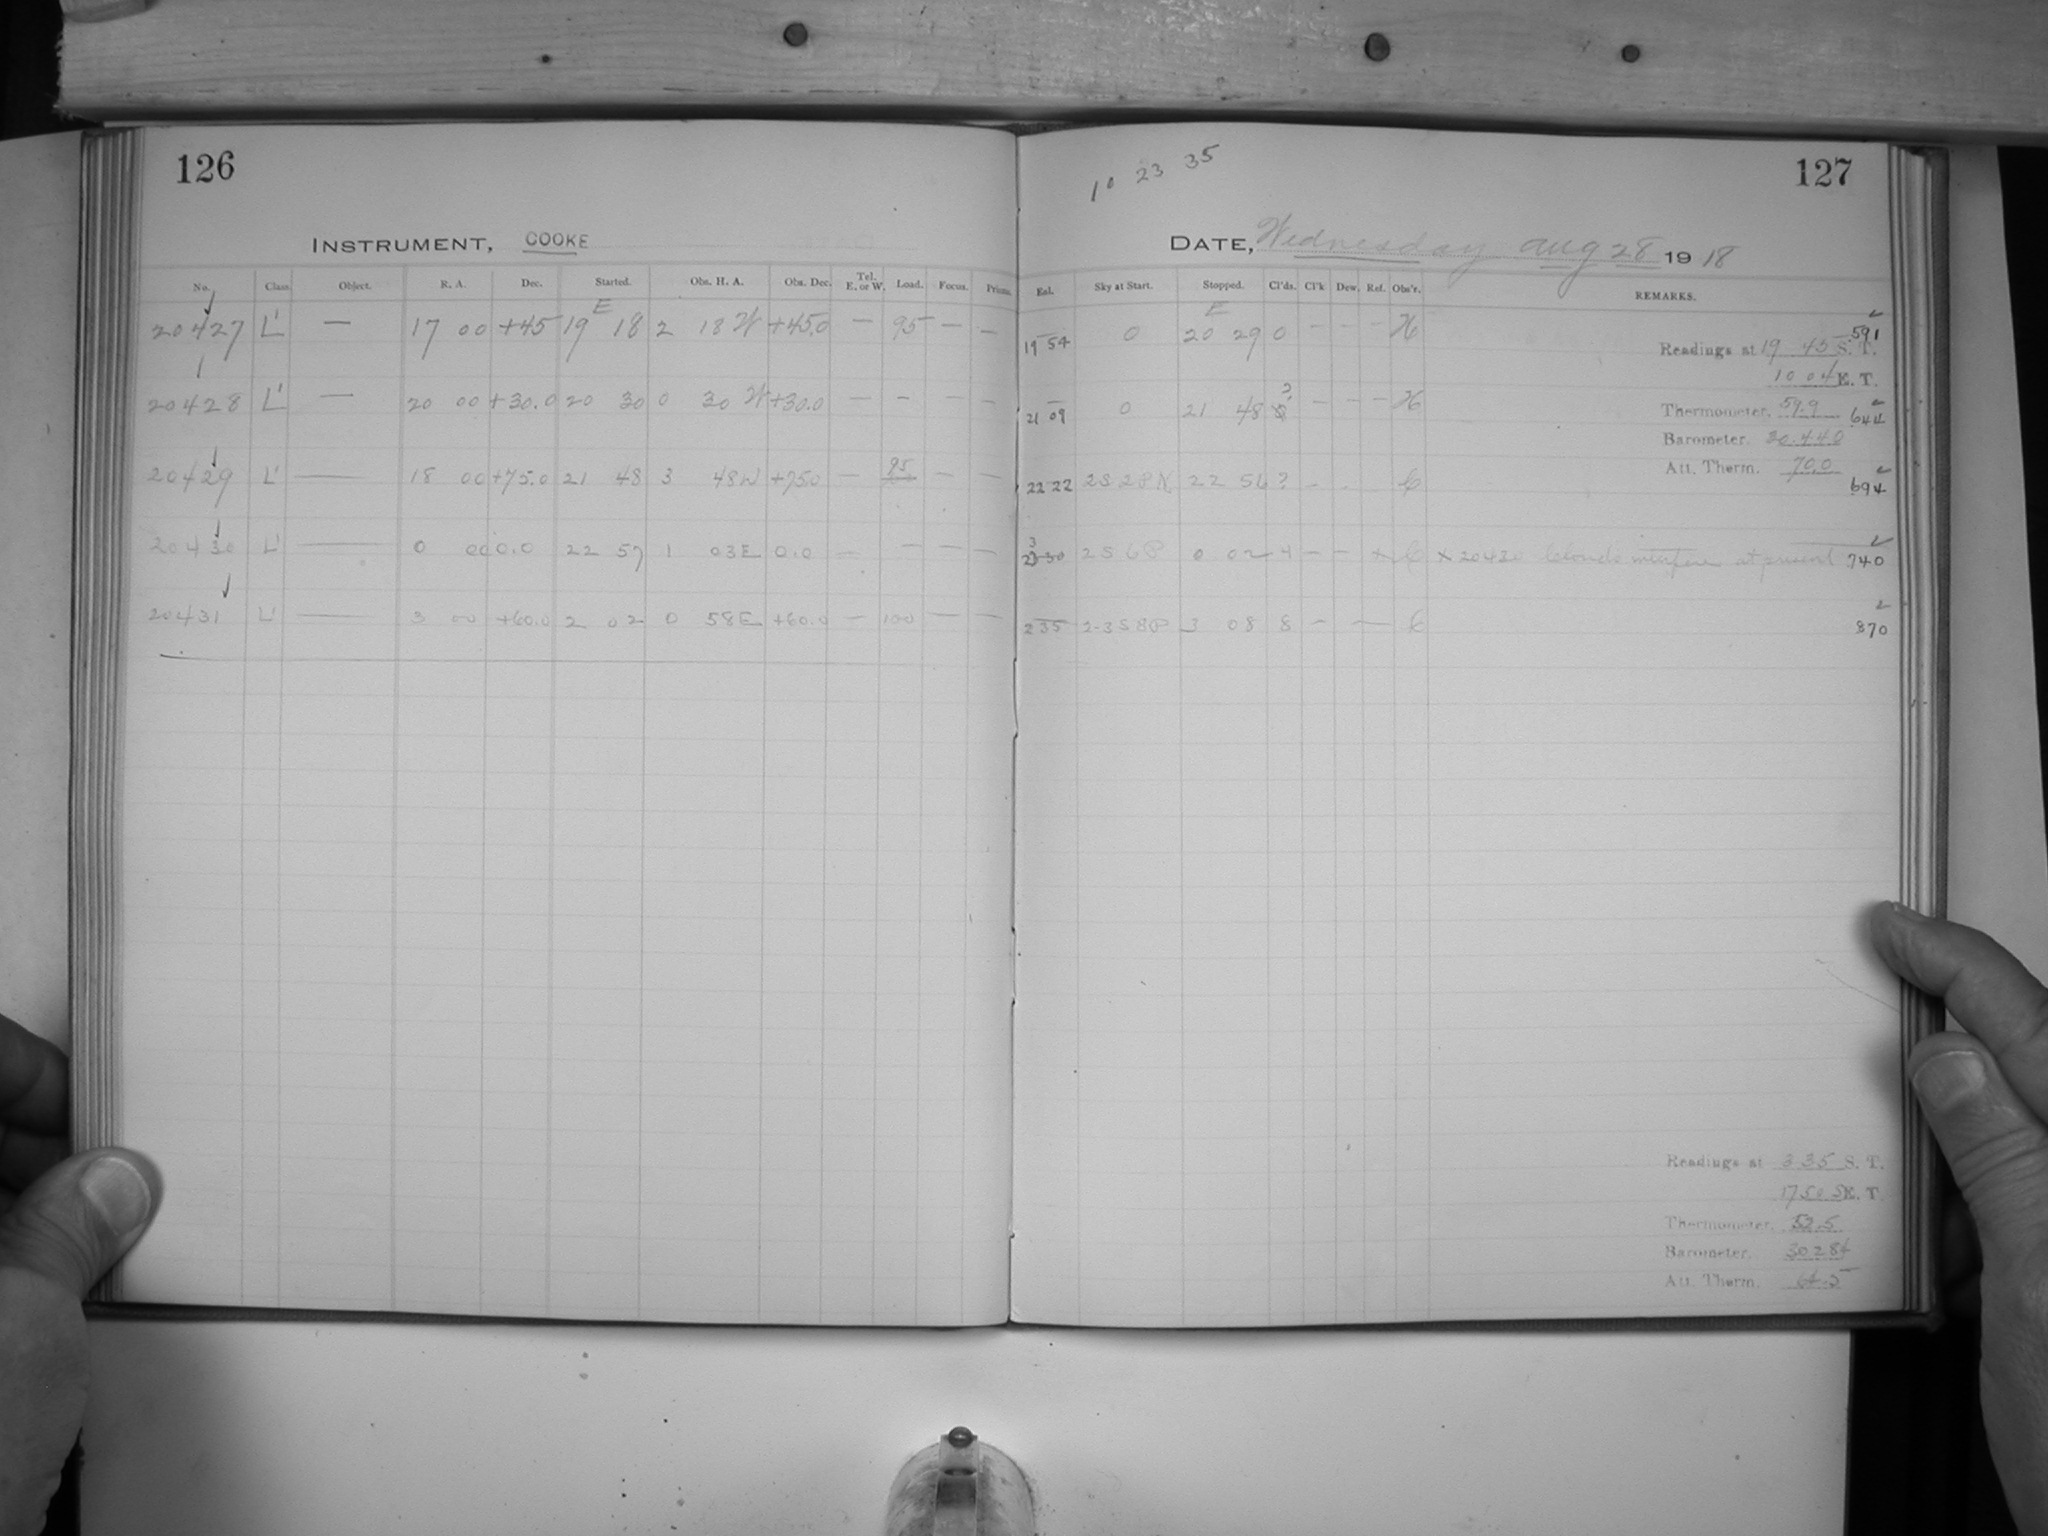 126
INSTRUMENT, COOKE
No. Class. Object. R. A. Dec. Started. Obs. H. A. Obs. Dec. Tel. E. or W. Load. Focus. Prism.
20427 L' — 17 00 +45 19 E 18 2 18 W +45.0 — 95 — —
20428 L' — 20 00 +30.0 20 30 0 30 W +30.0 — — — —
20429 L' — 18 00 +75.0 21 48 3 48W +75.0 — 95 — —
20430 L' — 0 00 0.0 22 57 1 03E 0.0 — — — —
20431 L' — 3 00 +60.0 2 02 0 58E +60.0 — 100 — —
10 23 35
127
DATE, Wednesday Aug 28 1918
Eol. Sky at Start. Stopped. Cl'ds. Cl'k Dew. Ref. Obs'r. REMARKS.
19 54 0 20 E 29 0 — — — H 591
Readings at 19 45 S. T.
10 04 E. T.
21 09 0 21 48 2 — — — H
Thermometer. 59.9 644
Barometer. 30.440
Att. Therm. 70.0
22 22 2S 2P N 22 56 ? C 694
23 30 2S 6P 0 02 4 — — × C × 20430 Clouds interfere at present 740
2 35 2-3S 8P 3 08 8 — — C 870
Readings at 3 35 S. T.
17 50 5 E. T
Thermometer. 52.5
Barometer. 30284
Att. Therm. 64.5